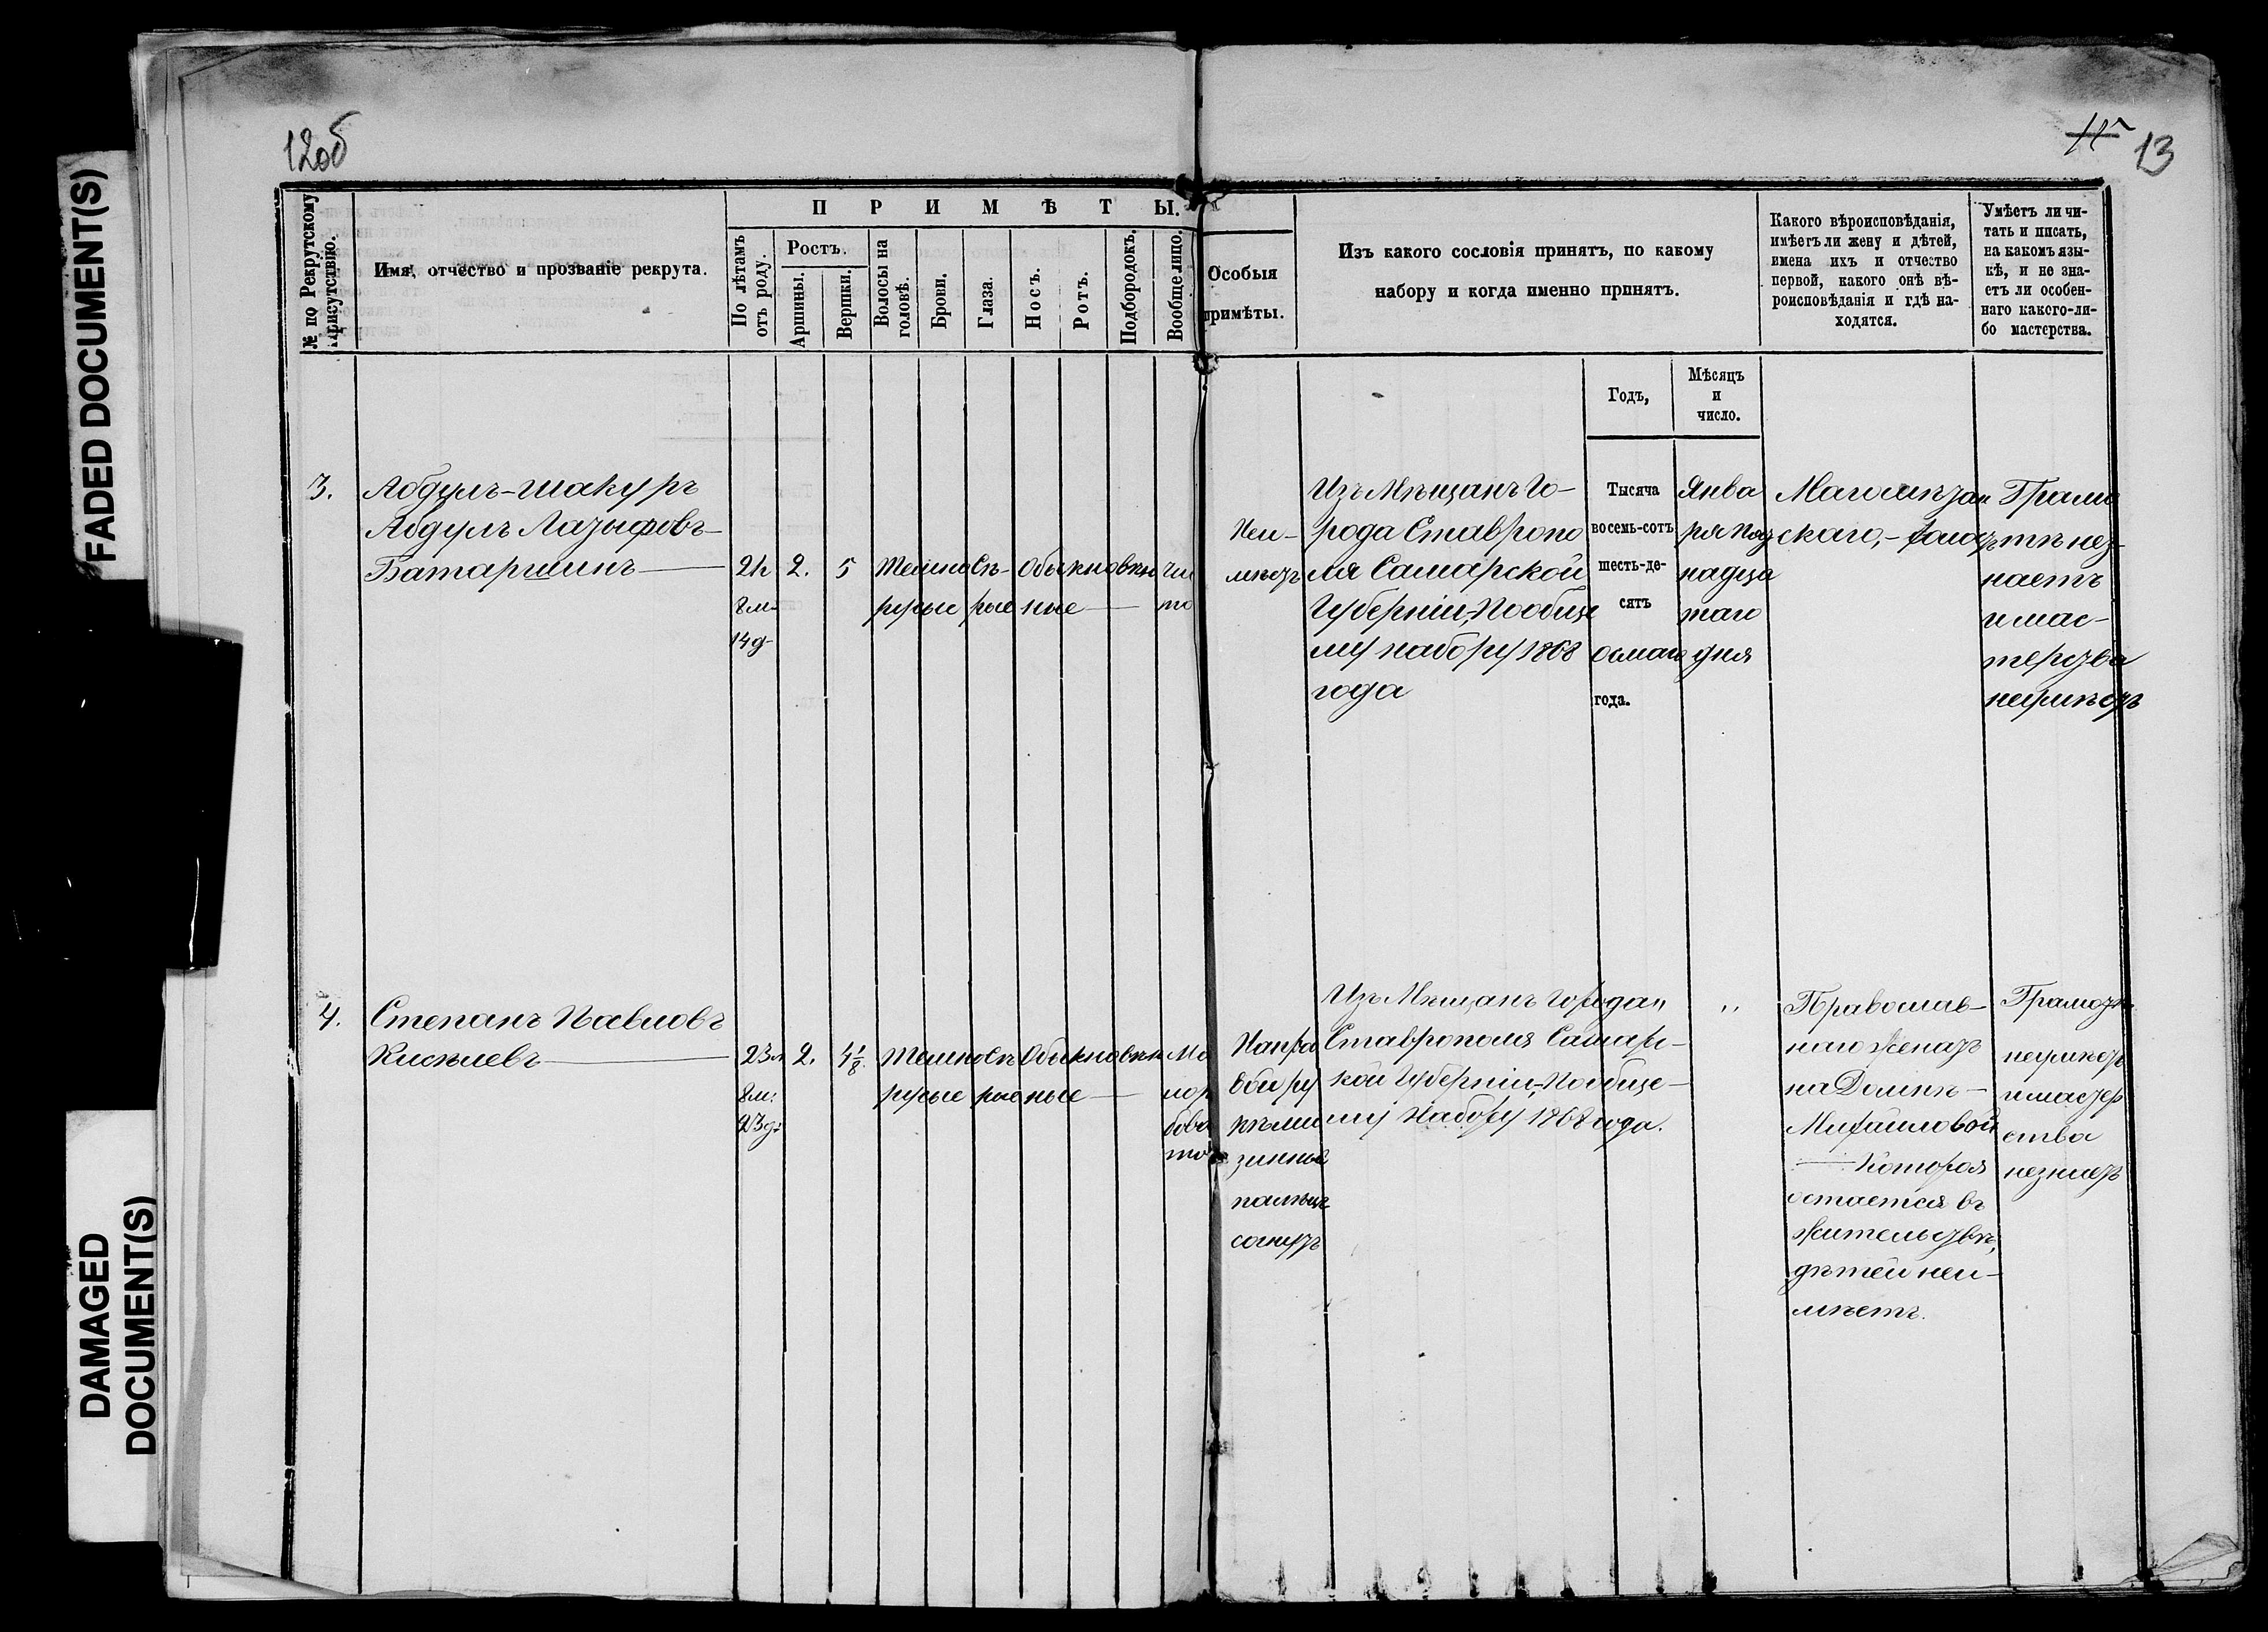 FADED DOCUMENT(S)
DAMAGED
DOCUMENT(S)
12об
13
№ по Рекрутскому
присутствію.
Имя, отчество и прозваніе рекрута.
ПРИМѢТЫ.
По лѣтамъ
отъ роду.
Ростъ.
Аршины.
Вершки.
Волосы на
головѣ.
Брови.
Глаза.
Носъ.
Ротъ.
Подбородокъ.
Вообще лицо.
Особыя
примѣты.
Изъ какого сословія принятъ, по какому
набору и когда именно принятъ.
Годъ,
Мѣсяцъ
и
число.
Какого вѣроисповѣданія,
имѣетъ ли жену и дѣтей,
имена ихъ и отчество
первой, какого онѣ вѣ-
роисповѣданія и гдѣ на-
ходятся.
Умѣетъ ли чи-
тать и писать,
на какомъ язы-
кѣ, и не зна-
етъ ли особен-
наго какого-ли-
бо мастерства.
3.
Абдулъ-шакуръ
Абдулъ Лазыфовъ
Батаршинъ
21
8м.
14д.
2.
5
Темно
русые
Сѣ-
рые
Обыкновен
ные
Чис
то
Неи-
мѣетъ
Изъ Мѣщанъ Го-
рода Ставропо
ля Самарской
Губерніи, Пообще
му набору 1868
года
Тысяча
восемь-сотъ
шесть-де-
сятъ
осмаго
года.
Янва
ря Пят
надца
таго
дня
Магометан
скаго, - холостъ
Грамо
тѣ нез-
наетъ
и мас-
терства
неимѣетъ
4.
Степанъ Павловъ
Киселевъ
23л
8м.
23д.
2.
4 1/8.
Темно
русые
Сѣ
рые
Обыкновен
ные
бова
то
Направ
вой ру
кѣ ми
зинный
палецъ
согнутъ
Изъ Мѣщанъ Города
Ставрополя Самарс-
кой Губерніи, Пообще-
му Набору 1868 года.
"
"
Православ-
наго Женатъ
на Домнѣ
Михайловой
Которая
остается въ
жительствѣ,
дѣтей неи-
мѣетъ.
Грамотѣ
неумѣетъ
и мастер
ства
незнаетъ